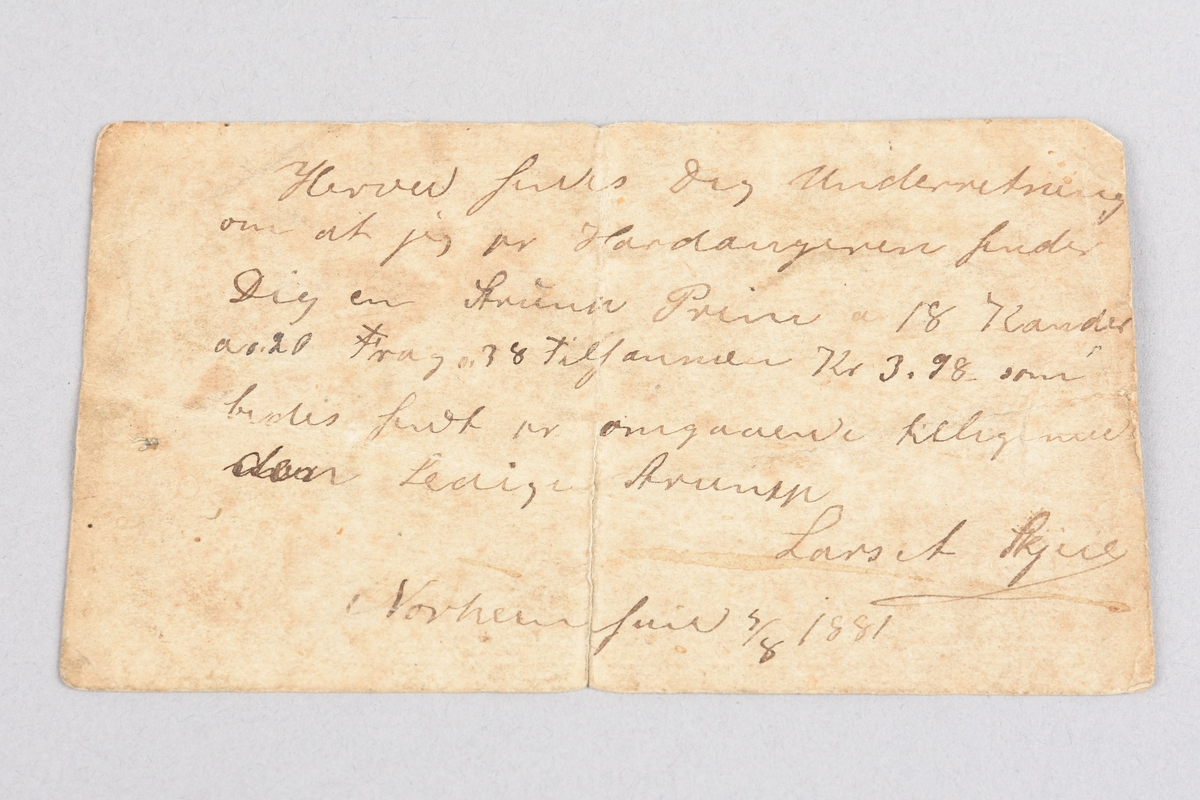 Herved sendes Dig Underretning
om at jeg pr Hardangeren sender
Dig en Strunk Prim a 18 Kander
a 0.20 Frag 0.38 tilsammen Kr 3.98 som
bedes sendt pr omgaaende tilligemed
den Ledige Strunk
Lars A Skjeie
Norheimsund 5/8 1881